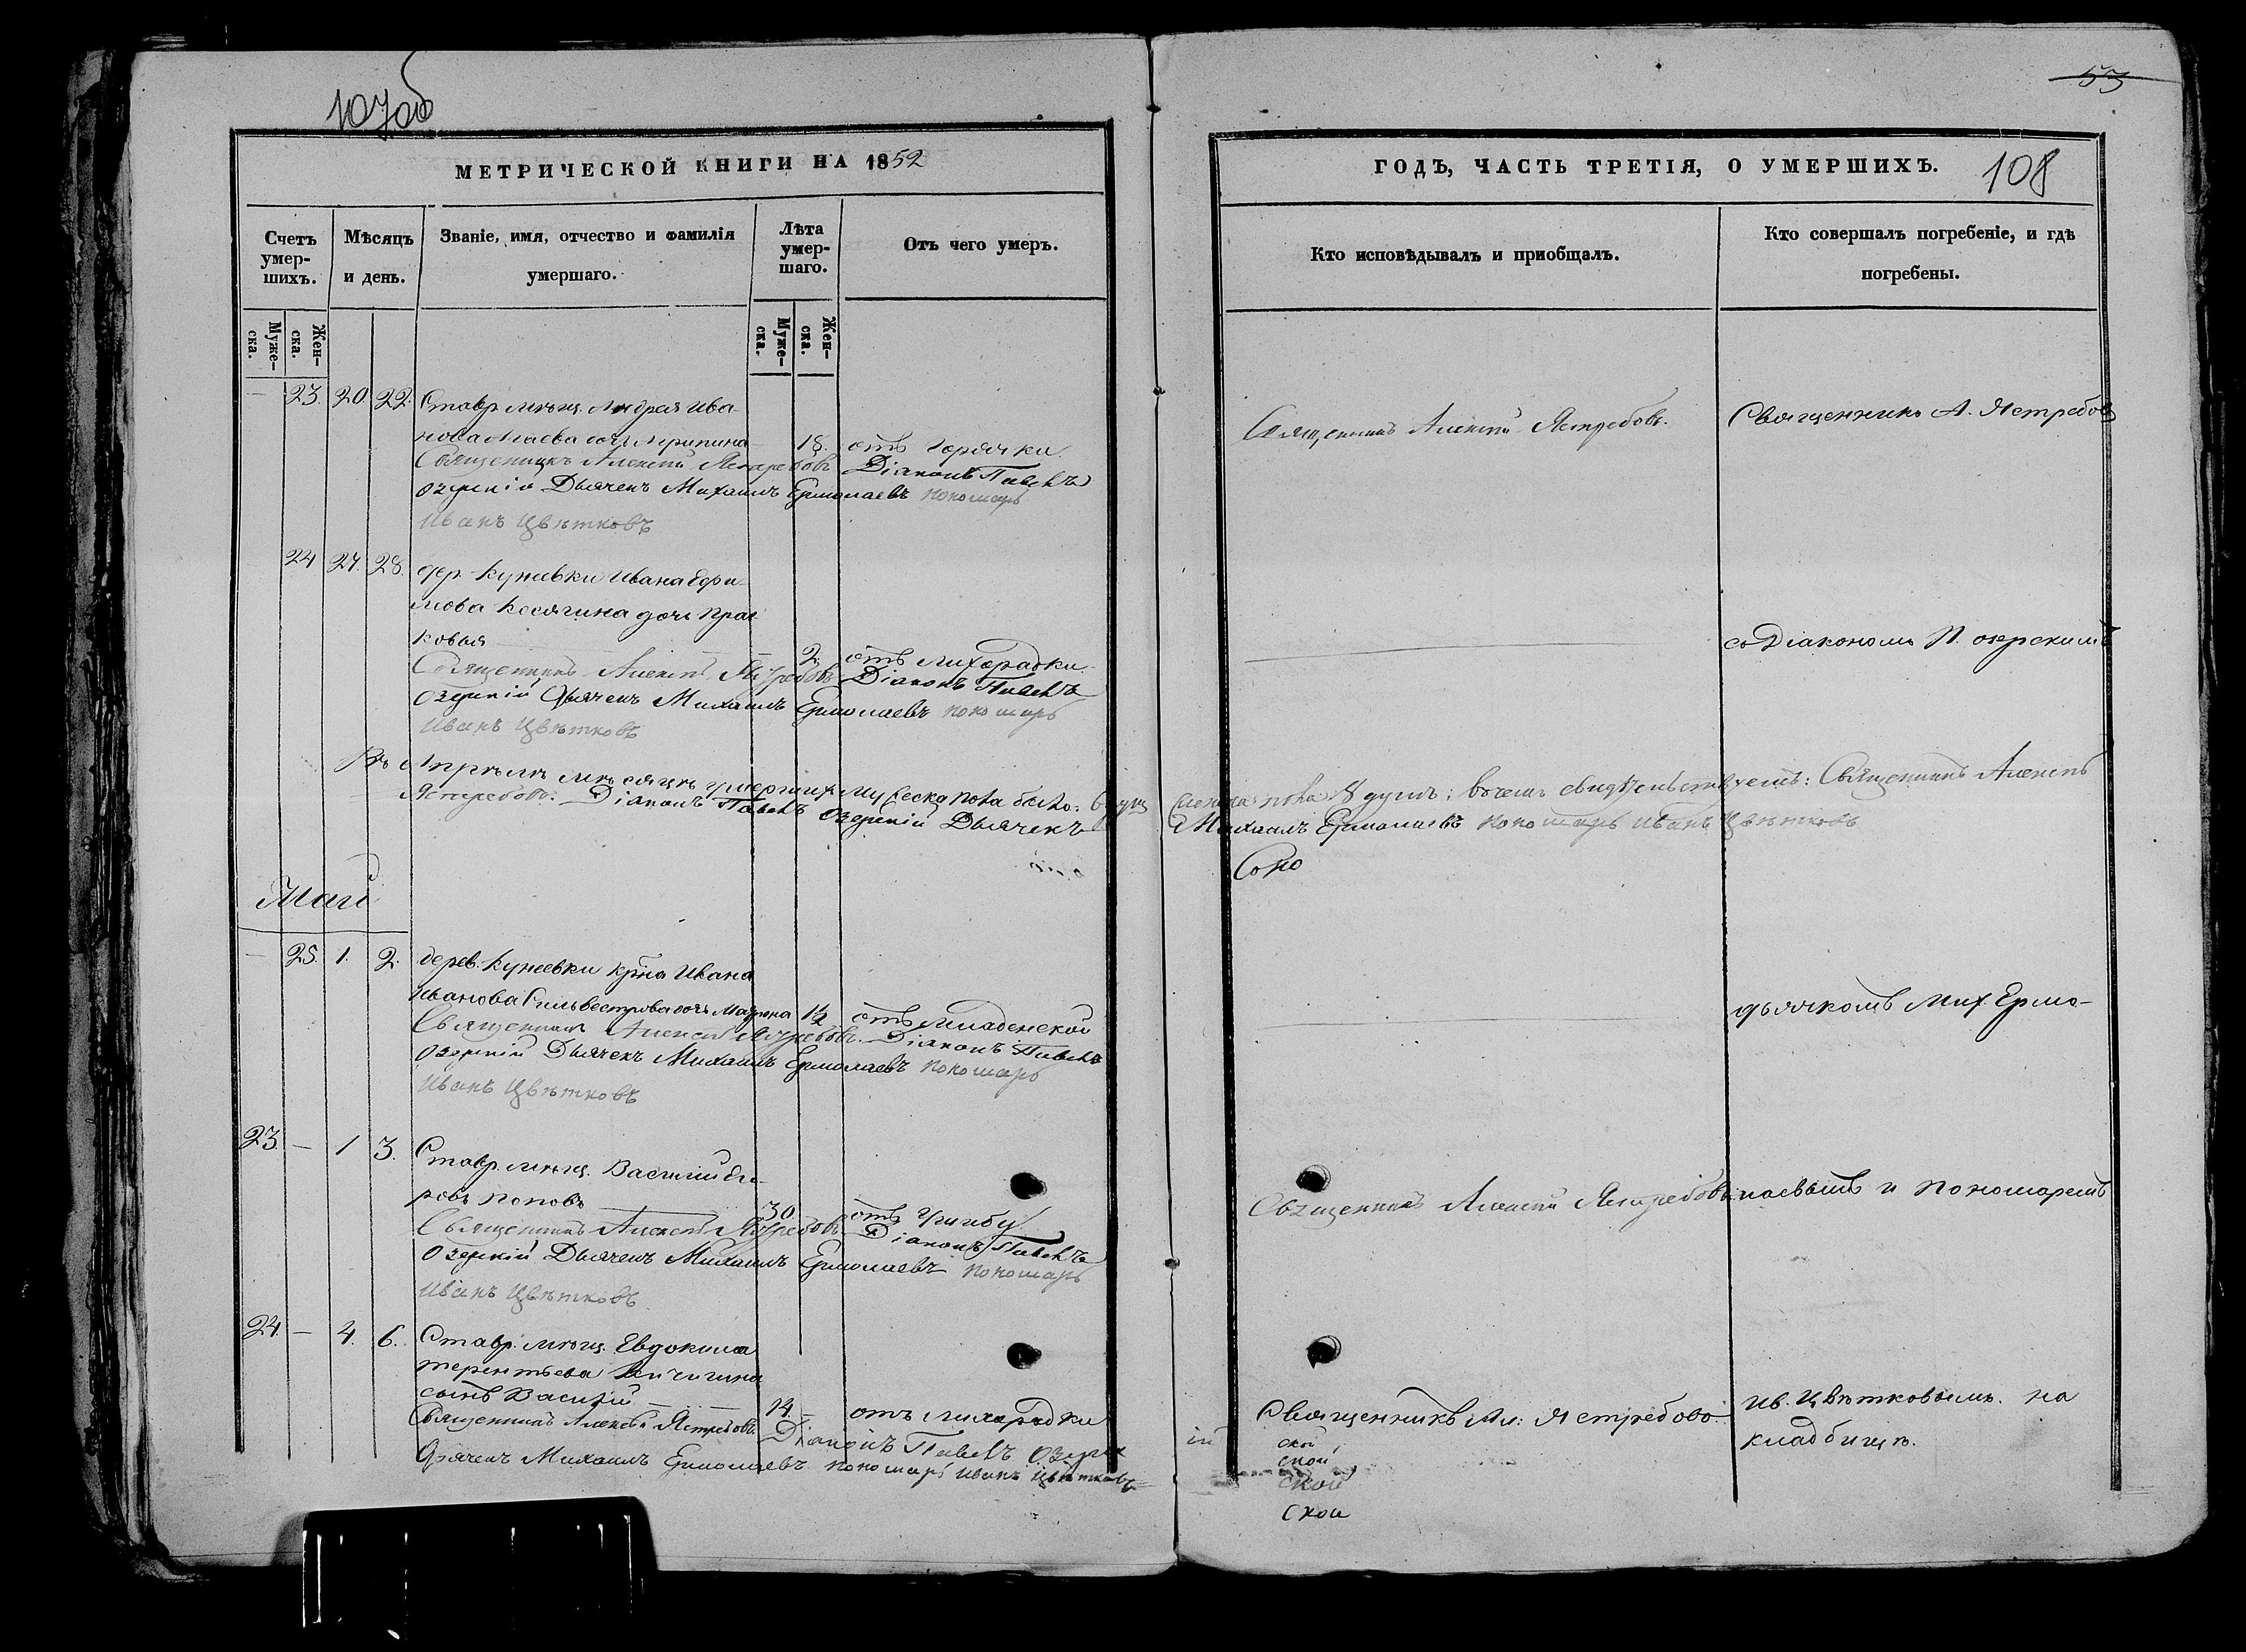 107об
МЕТРИЧЕСКОЙ КНИГИ НА 1852
Счетъ умер-шихъ.
Мѣсяцъ и день.
Званіе, имя, отчество и фамилія умершаго.
Лѣта умер-шаго.
Отъ чего умеръ.
Муже-ска.
Жен-ска.
Муже-ска.
Жен-ска.
— 23. 20 22. Ставр. мѣщ. Андрея Ива-
нова дочь
18. отъ горячки.
Священникъ Алексѣй Ястребовъ Діаконъ Павелъ
Озерскій Дьячекъ Михаилъ Ермолаевъ пономарь
Иванъ Цвѣтковъ
24 27. 28. дер. Кунеевки Ивана Ефи-
мова Косягина дочь Прас-
ковья
2 отъ лихорадки
Священникъ Алексѣй Ястребовъ Діаконъ Павелъ
Озерскій Дьячекъ Михаилъ Ермолаевъ пономарь
Иванъ Цвѣтковъ
Въ Апрѣлѣ мѣсяцѣ умершихъ мужеска пола было:
Ястребовъ. Діаконъ Павелъ Озерскій Дьячекъ
Май
— 25. 1. 2. дерев. Кунеевки крна Ивана
Иванова Сильвестрова дочь Матрона 1½ отъ младенской
Священникъ Алексѣй Ястребовъ. Діаконъ Павелъ
Озерскій Дьячекъ Михаилъ Ермолаевъ пономарь
Иванъ Цвѣтковъ
23. — 1 3. Ставр. мѣщ. Василій
Поповъ
30 отъ
Священникъ Алексѣй Ястребовъ Діаконъ Павелъ
Озерскій Дьячекъ Михаилъ Ермолаевъ пономарь
Иванъ Цвѣтковъ
24. — 4. 6. Ставр. мѣщ. Евдокима
Терентьева
сынъ Василій
14 — отъ лихорадки
Священникъ Алексѣй Ястребовъ. Діаконъ Павелъ Озерск
Дьячекъ Михаилъ Ермолаевъ пономарь Иванъ Цвѣтковъ
53
ГОДЪ, ЧАСТЬ ТРЕТІЯ, О УМЕРШИХЪ.
108
Кто исповѣдывалъ и приобщалъ.
Кто совершалъ погребеніе, и гдѣ погребены.
Священникъ Алексѣй Ястребовъ.
Священникъ А. Ястребовъ
съ Діакономъ П. Озерскимъ
пола 8 душъ; въ чемъ свидѣтельствуетъ: Священникъ Алексѣй
Михаилъ Ермолаевъ пономарь Иванъ Цвѣтковъ
дьячкомъ Мих. Ермо-
Священникъ Алексѣй Ястребовъ
лаевымъ и пономаремъ
Священникъ Ал: Ястребовъ
Ив. Цвѣтковымъ. на
кладбищѣ.
ій
ской
ской
ской
ской